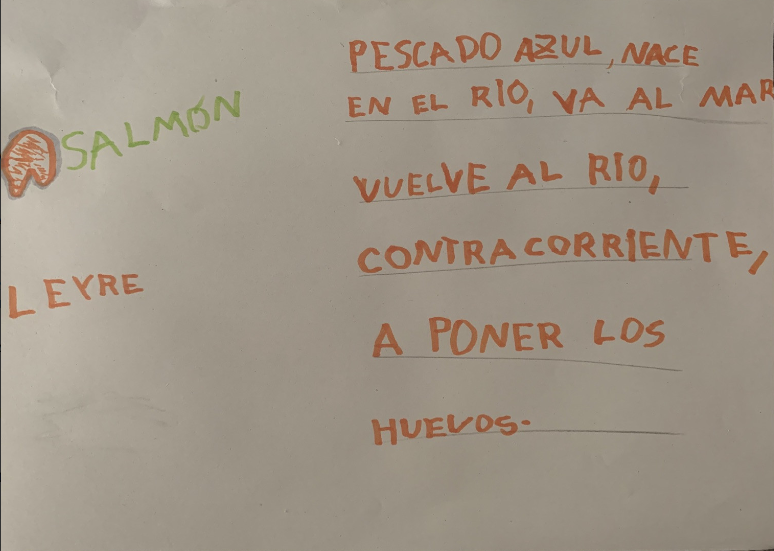 SALMÓN
LEYRE
PESCADO AZUL, NACE
EN EL RÍO, VA AL MAR
VUELVE AL RIO,
CONTRACORRIENTE,
A PONER LOS
HUEVOS.